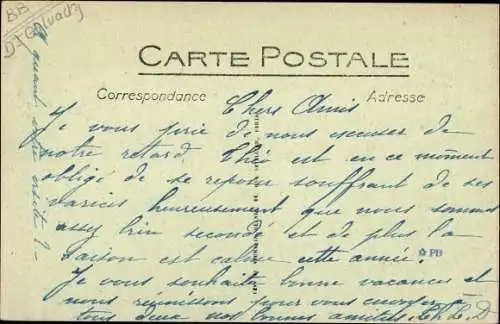 BB
D. Calvados
CARTE POSTALE
Correspondance
Adresse
Chers Amis
Je vous prie de nous excuser de
notre retard. Théo est en ce moment
obligé de se reposer souffrant de ses
varices heureusement que nous sommes
assez bien secondé et de plus la
saison est calme cette année.
PB
Je vous souhaite bonne vacances et
nous réunissons pour vous envoyer à
tous deux nos bonnes amitiés. Th. L. D
A quand votre visite ?